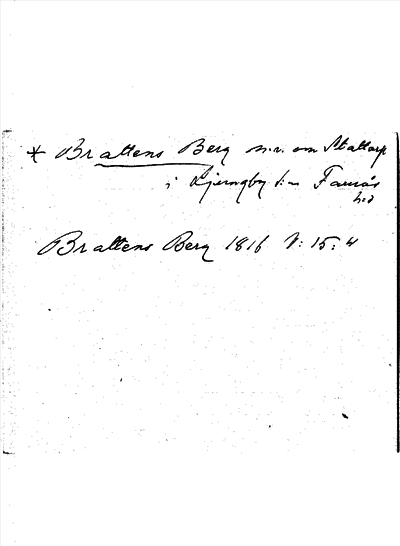 * Brattens Berg n.v. om Stattorp
i Kjerngby s:n Farnäs
hed
Brattens Berg 1816 V: 15: 4